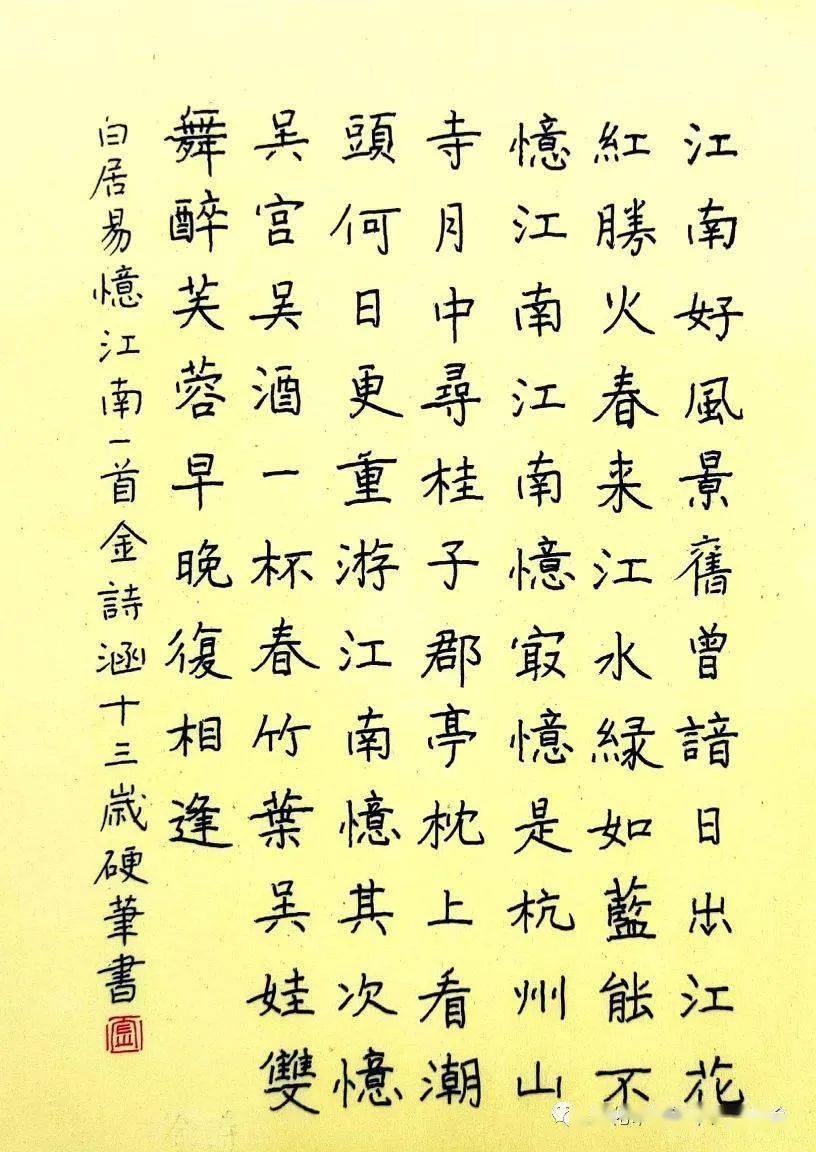 江南好風景舊曾諳日出江花
紅勝火春来江水緑如藍能不
憶江南江南憶㝡憶是杭州山
寺月中尋桂子郡亭枕上看潮
頭何日更重游江南憶其次憶
吴宫吴酒一杯春竹葉吴娃雙
舞醉芙蓉早晚復相逢
白居易憶江南一首金詩涵十三嵗硬筆書